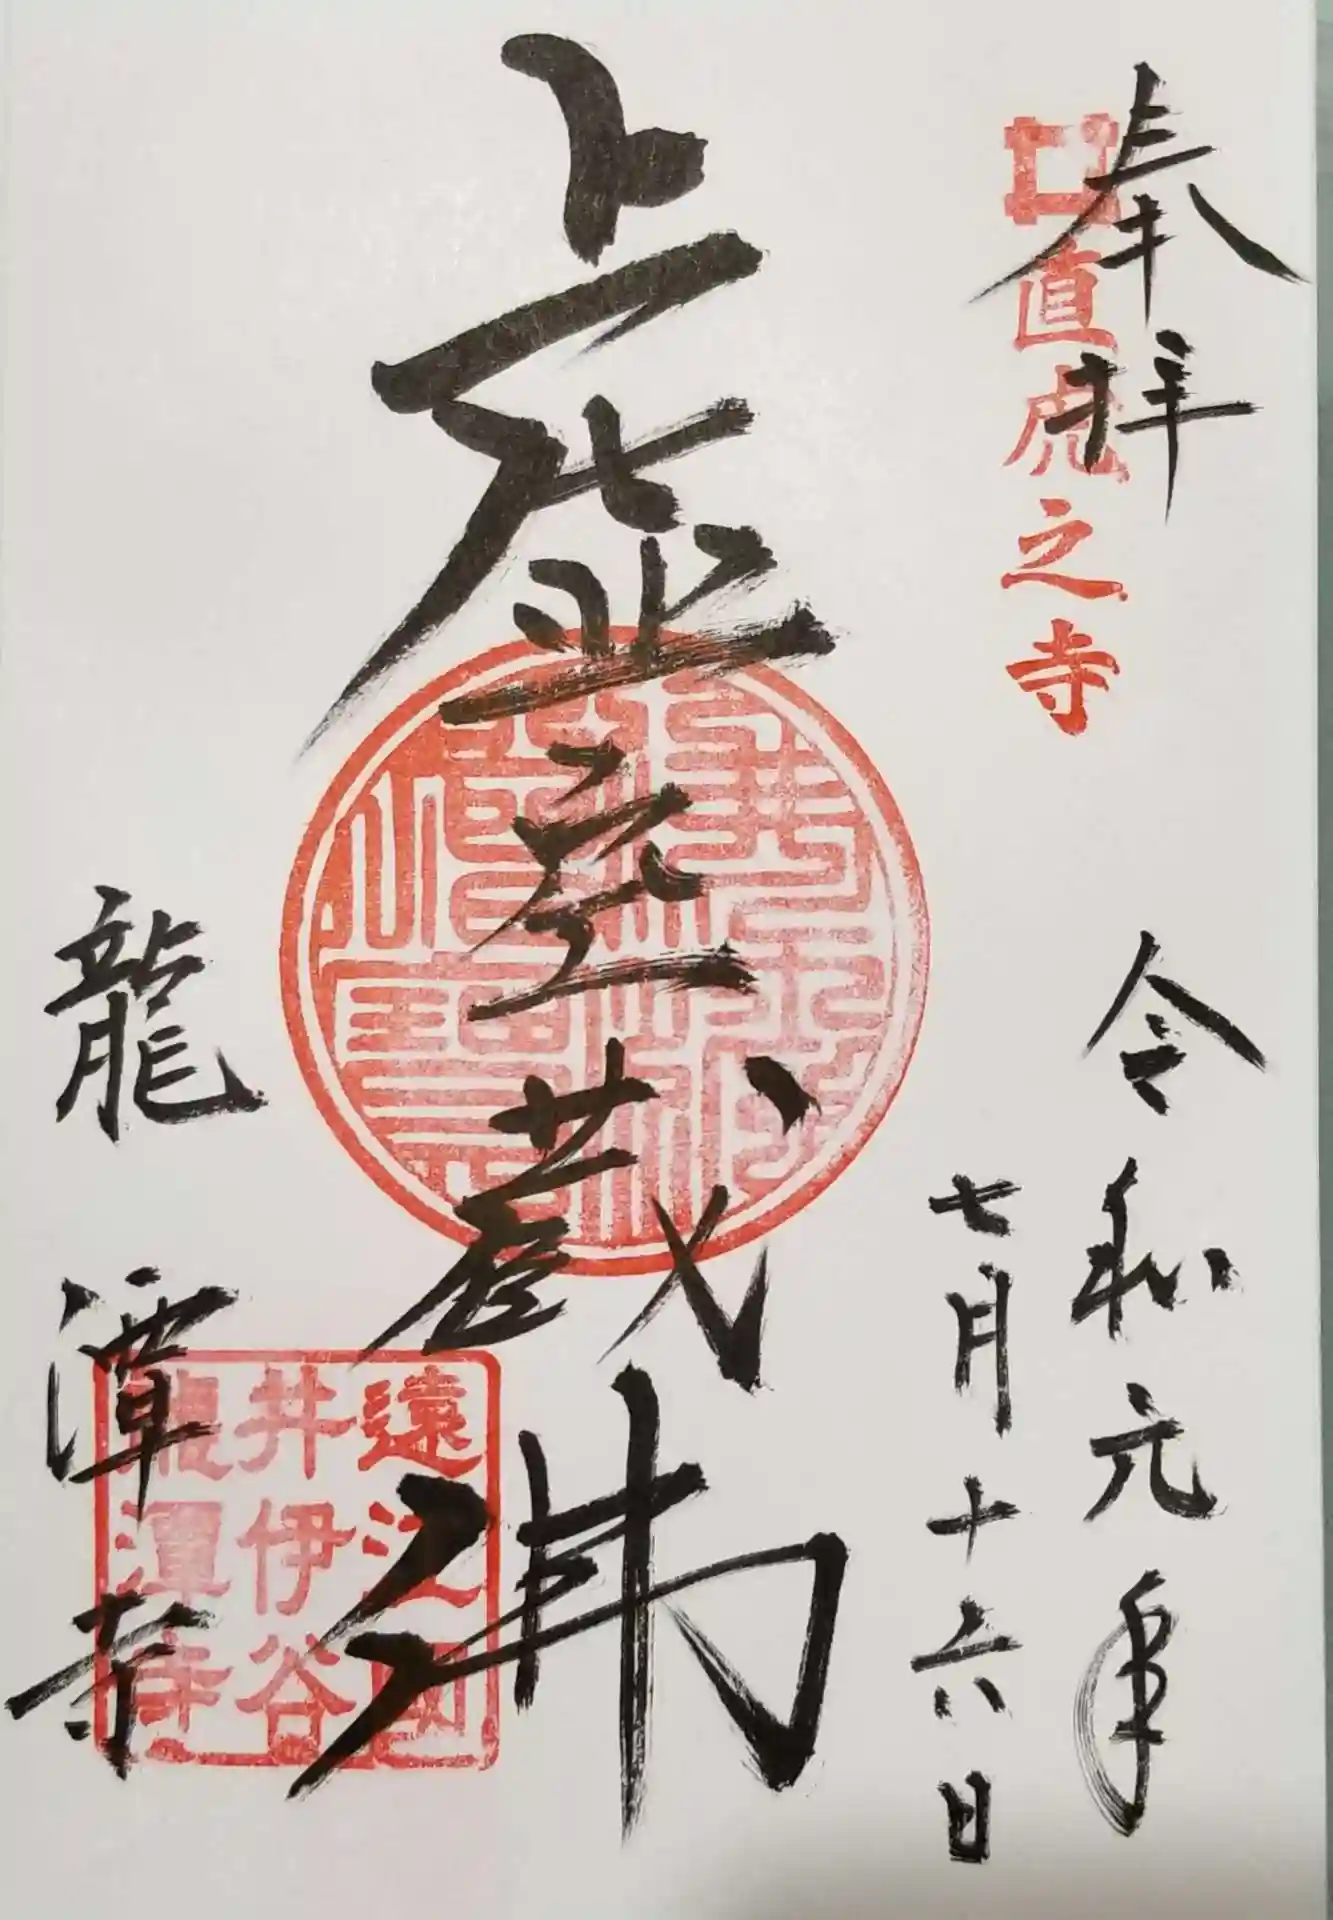 奉拝
直虎之寺
令和元年
七月十六日
虚空蔵佛
遠江國
井伊谷
龍潭寺
龍潭寺